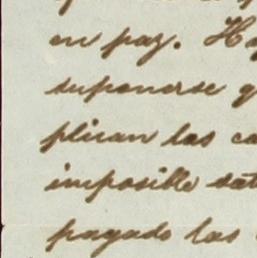 en paz. Ha
suponerse q
plican las ca
imposible sat
pagado las